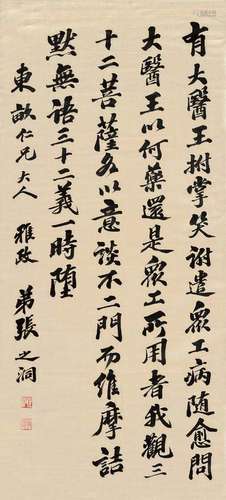 有大醫王拊掌笑謝遣眾工病随愈問
大醫王以何藥還是眾工所用者我觀三
十二菩薩各以意談不二門而維摩詰
默無語三十二義一時堕
東畝仁兄大人 雅政 弟張之洞